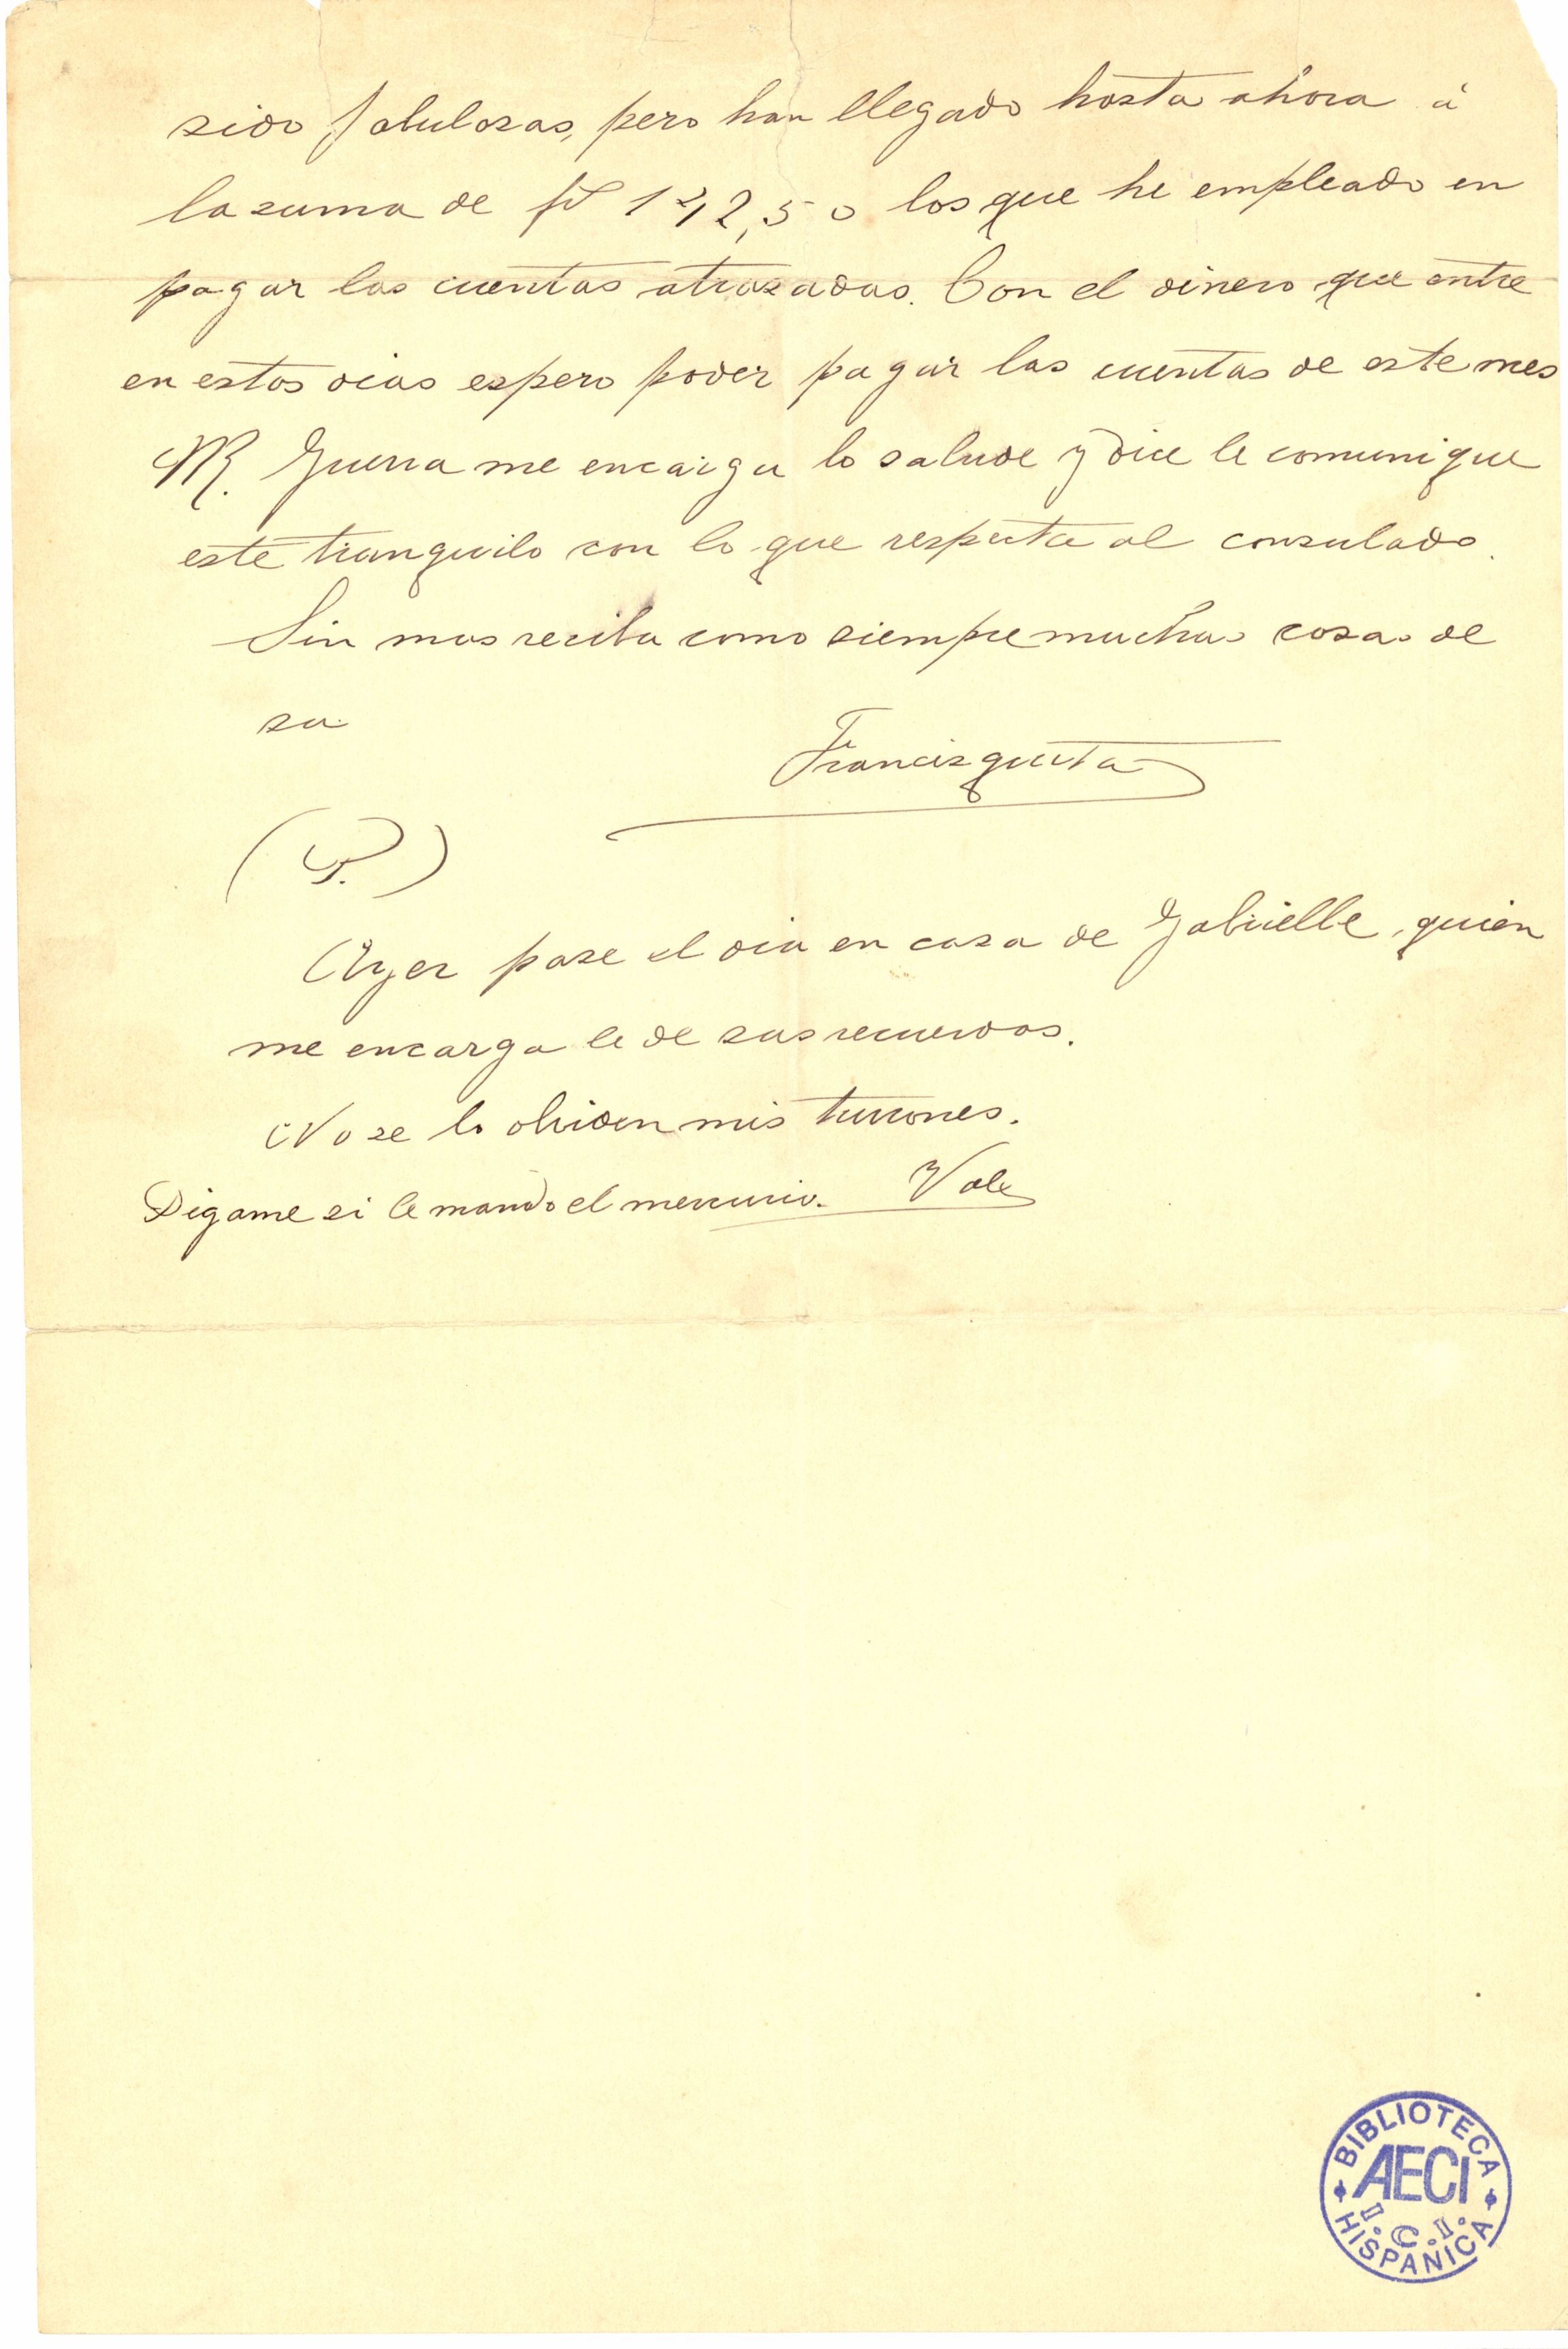 sido fabulosas, pero han llegado hasta ahora á
la suma de 142,50 los que he empleado en
pagar las cuentas atrazadas. Con el dinero que entre
en estos dias espero poder pagar las cuentas de este mes
Mr. Guerra me encarga lo salude y dice le comunique
esté tranquilo con lo que respecta al consulado.
Sin mas reciba como siempre muchas cosas de
su
Francisquita
(P.)
Ayer pase el dia en casa de Gabrielle, quien
me encarga le de sus recuerdos.
No se le olviden mis turrones.
Digame si le mando el mercurio. Vale
BIBLIOTECA
AECI
I.C.I.
HISPANICA